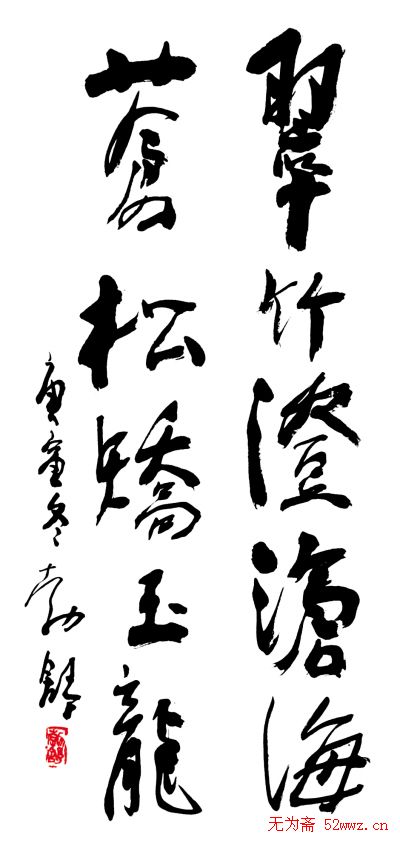 翠竹澄滄海
蒼松矯玉龍
庚寅冬勃舒
无为斋 52wwz.cn